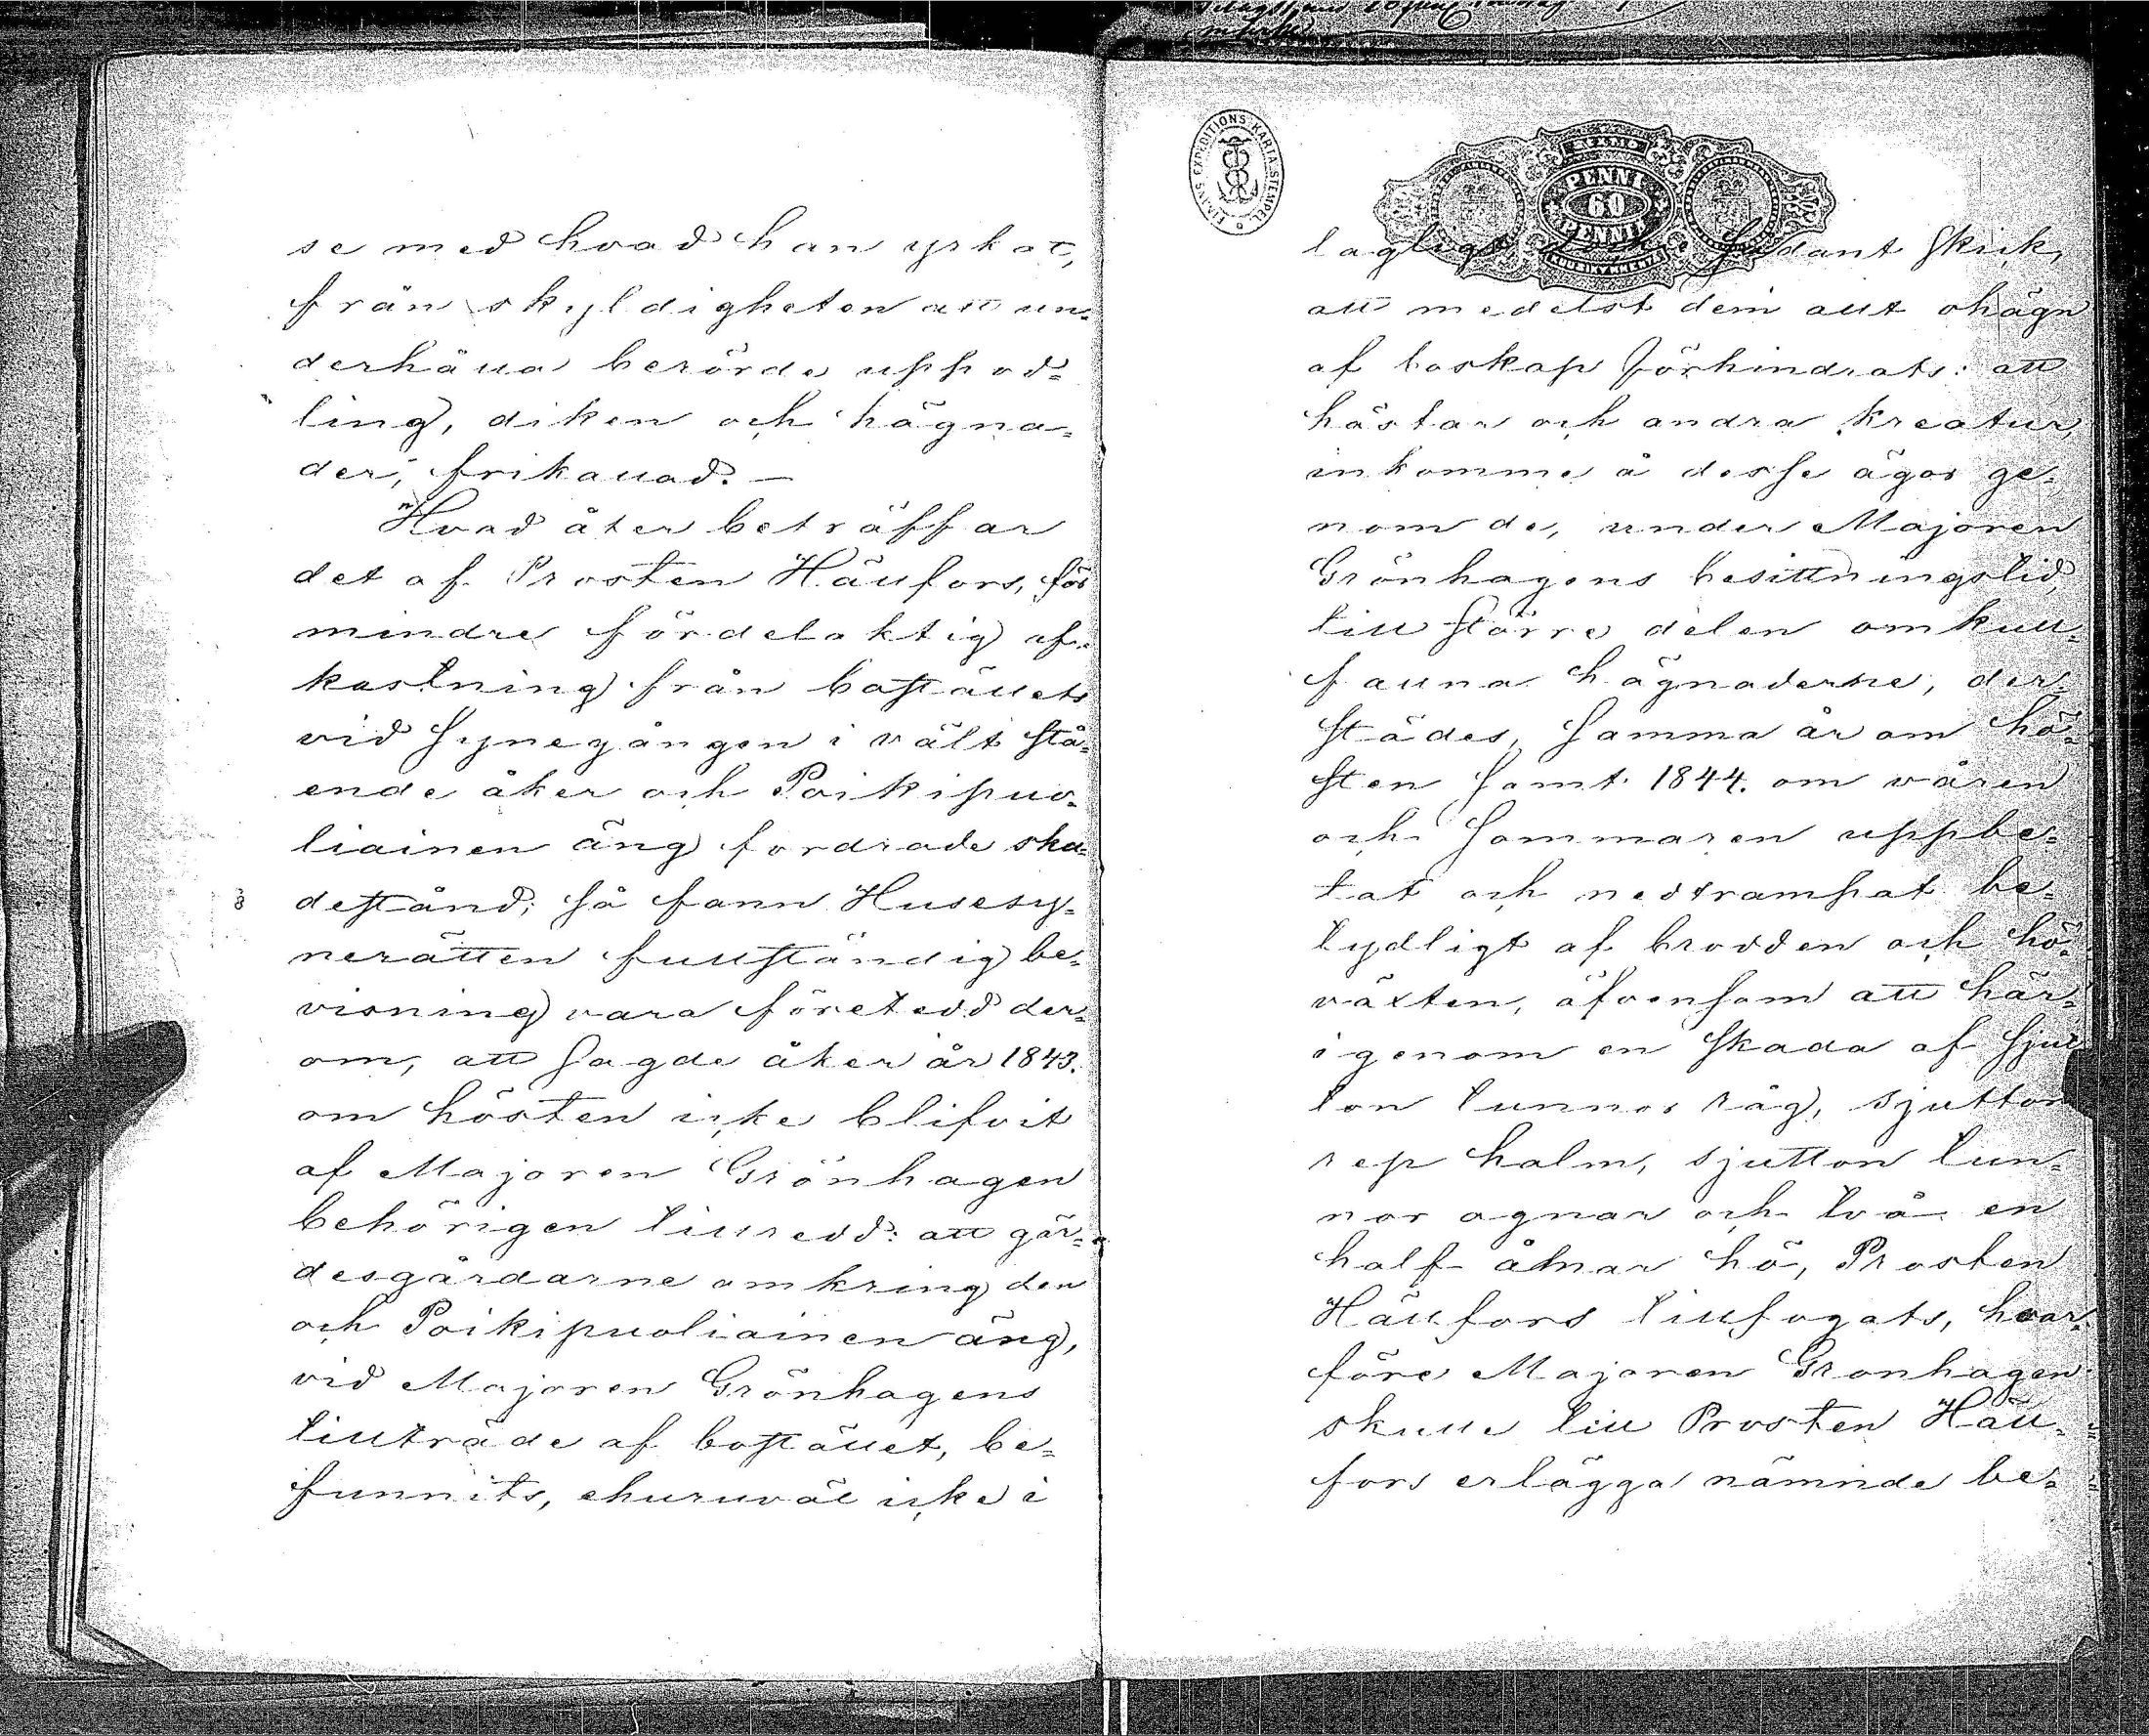 se med hvad han yrkat,
från skyldigheten att un-
derhålla berörde uppod-
ling, diken och hägna-
der, frikallad. —
Hvad åter beträffar
det af Prosten Hällfors, för
mindre fördelaktig af-
kastning från boställets
vid synegången i vält stå-
ende åker och Poikipuo-
liainen äng fordrade ska-
destånd; så fann Husesy-
nerätten fullständig be-
visning vara företedd der-
om, att sagde åker år 1843.
om hösten icke blifvit
af Majoren Grönhagen
behörigen tillredd: att gär-
desgårdarne omkring den
och Poikipuoliainen äng,
vid Majoren Grönhagens
tillträde af bostället, be-
funnits, ehuruväl icke i
FINANS EXPEDITIONS KARTA STEMPEL
PENNI
60
PENNIÄ
lagligt, dock i sådant skick,
att medelst dem allt ohägn
af boskap förhindrats: att
hästar och andra kreatur,
inkomme å desse ägor ge-
nom de, under Majoren
Grönhagens besittningstid,
till större delen omkull-
fallna hägnaderne, der-
städes, samma år om hö-
sten samt 1844. om våren
och sommaren uppbe-
tat och nedtrampat be-
tydligt af brodden och hö-
växten, äfvensom att här-
igenom en skada af sjut-
ton tunnor råg, sjutton
rep halm, sjutton tun-
nor agnar och två en
half ålnar hö, Prosten
Hällfors tillfogats, hvar-
före Majoren Gronhagen
skulle till Prosten Häll-
fors erlägga nämnde be-